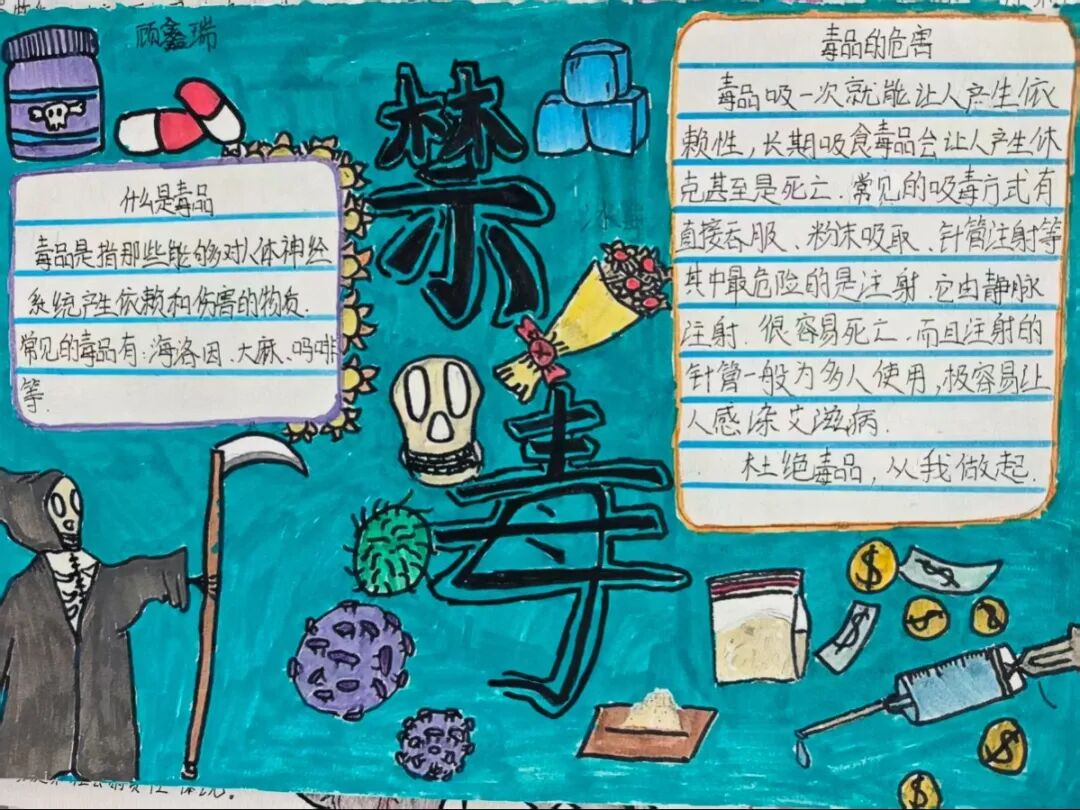 顾鑫瑞
禁
毒
什么是毒品
毒品是指那些能够对人体神经
系统产生依赖和伤害的物质.
常见的毒品有:海洛因、大麻、吗啡
等.
毒品的危害
毒品吸一次就能让人产生依
赖性,长期吸食毒品会让人产生休
克甚至是死亡.常见的吸毒方式有
直接吞服、粉末吸取、针管注射等
其中最危险的是注射.它由静脉
注射.很容易死亡.而且注射的
针管一般为多人使用,极容易让
人感染艾滋病.
杜绝毒品,从我做起.